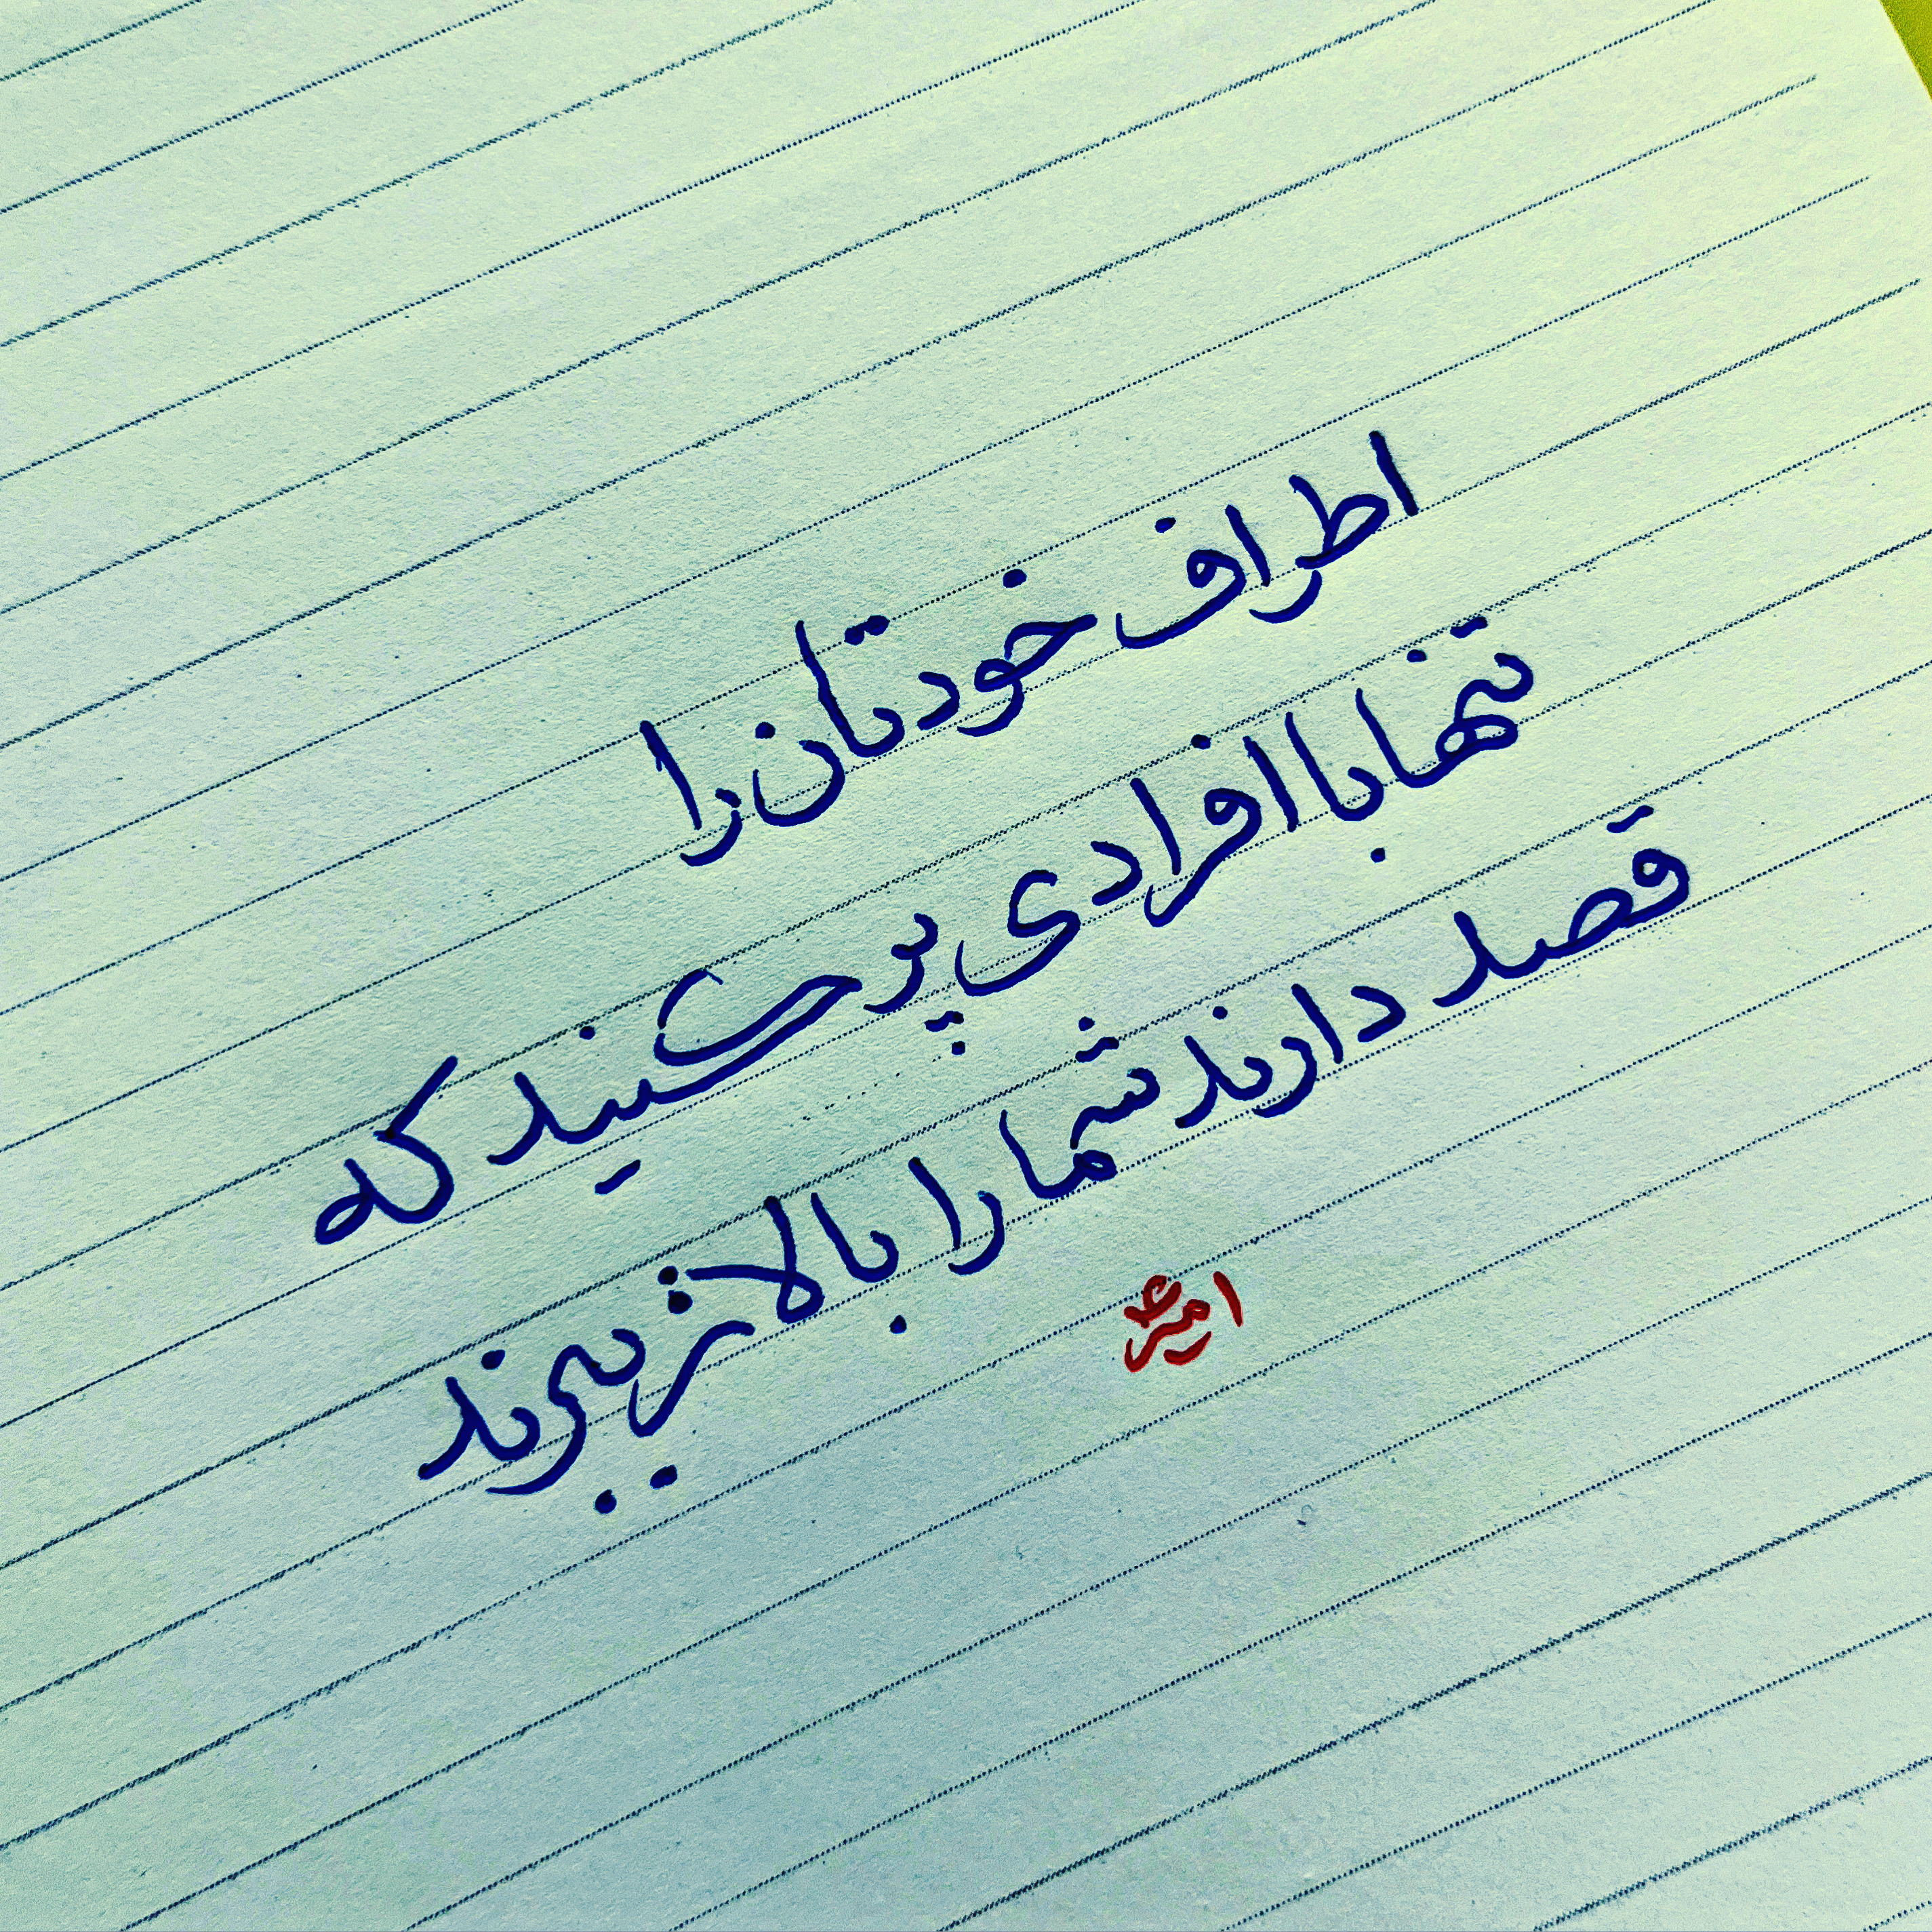 اطراف خودتان را
تنها با افرادی پر کنید که
قصد دارند شما را بالاتر ببرند